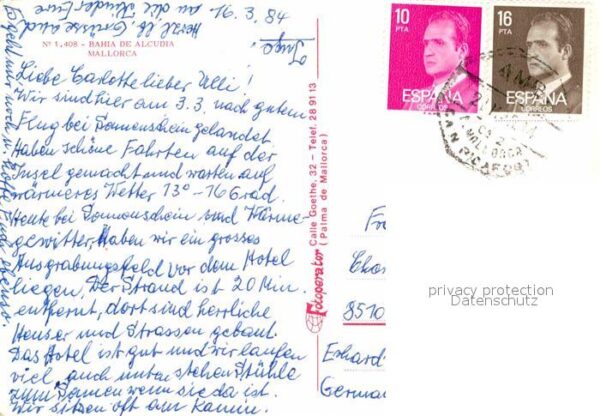 16.3.84
Nº 1.408 - BAHIA DE ALCUDIA
MALLORCA
Liebe Carlotte lieber Ulli!
Wir sind hier am 3.3. nach gutem
Flug bei Sonnenschein gelandet
Haben schöne Fahrten auf der
Insel gemacht und warten auf
wärmeres Wetter 13°-16 Grad.
Heute bei Sonnenschein und Wärme-
gewitter. Haben wir ein grosses
Ausgrabungsfeld vor dem Hotel
liegen. Der Strand ist 20 Min.
entfernt, dort sind herrliche
Heuser und Strassen gebaut.
Das Hotel ist gut und wir laufen
viel, auch unten stehen Stühle
zum Sonnen wenn sie da ist.
Wir sitzen oft am Kamin.
Herzl. Grüsse
an die Kinder Eure
Inge
Fotoperator Calle Goethe, 32 - Telef. 28 9113
(Palma de Mallorca)
10
PTA
ESPAÑA
CORREOS
16
PTA
ESPAÑA
CORREOS
CAN PICAFORT
8510
Erhard-
German
privacy protection
Datenschutz